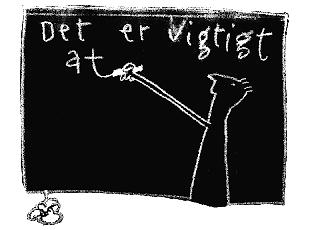 Det er Vigtigt
at